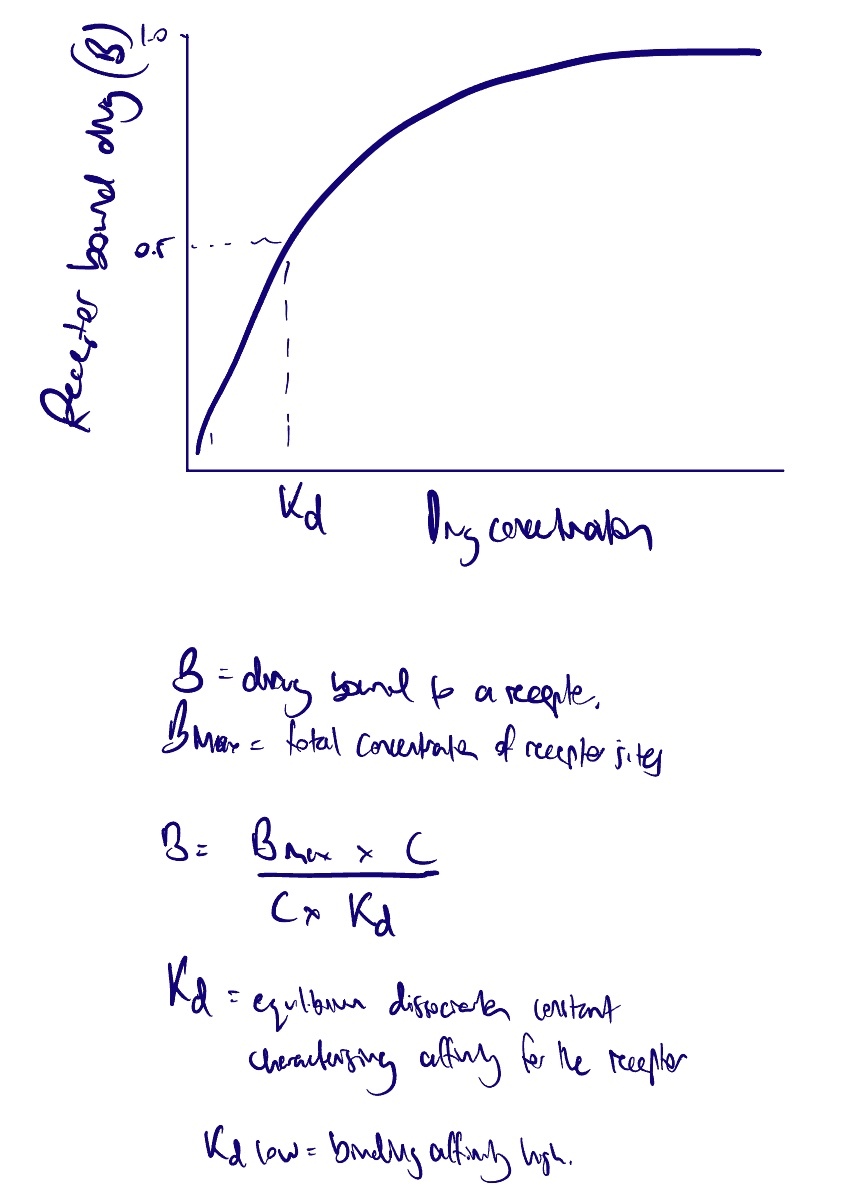 1.0
Receptor bound drug (B)
0.5
Kd
Drug concentration
B = drug bound to a receptor.
Bmax = total concentration of receptor sites
B = Bmax x C
C x Kd
Kd = equilibrium dissociation constant
characterising affinity for the receptor
Kd low = binding affinity high.